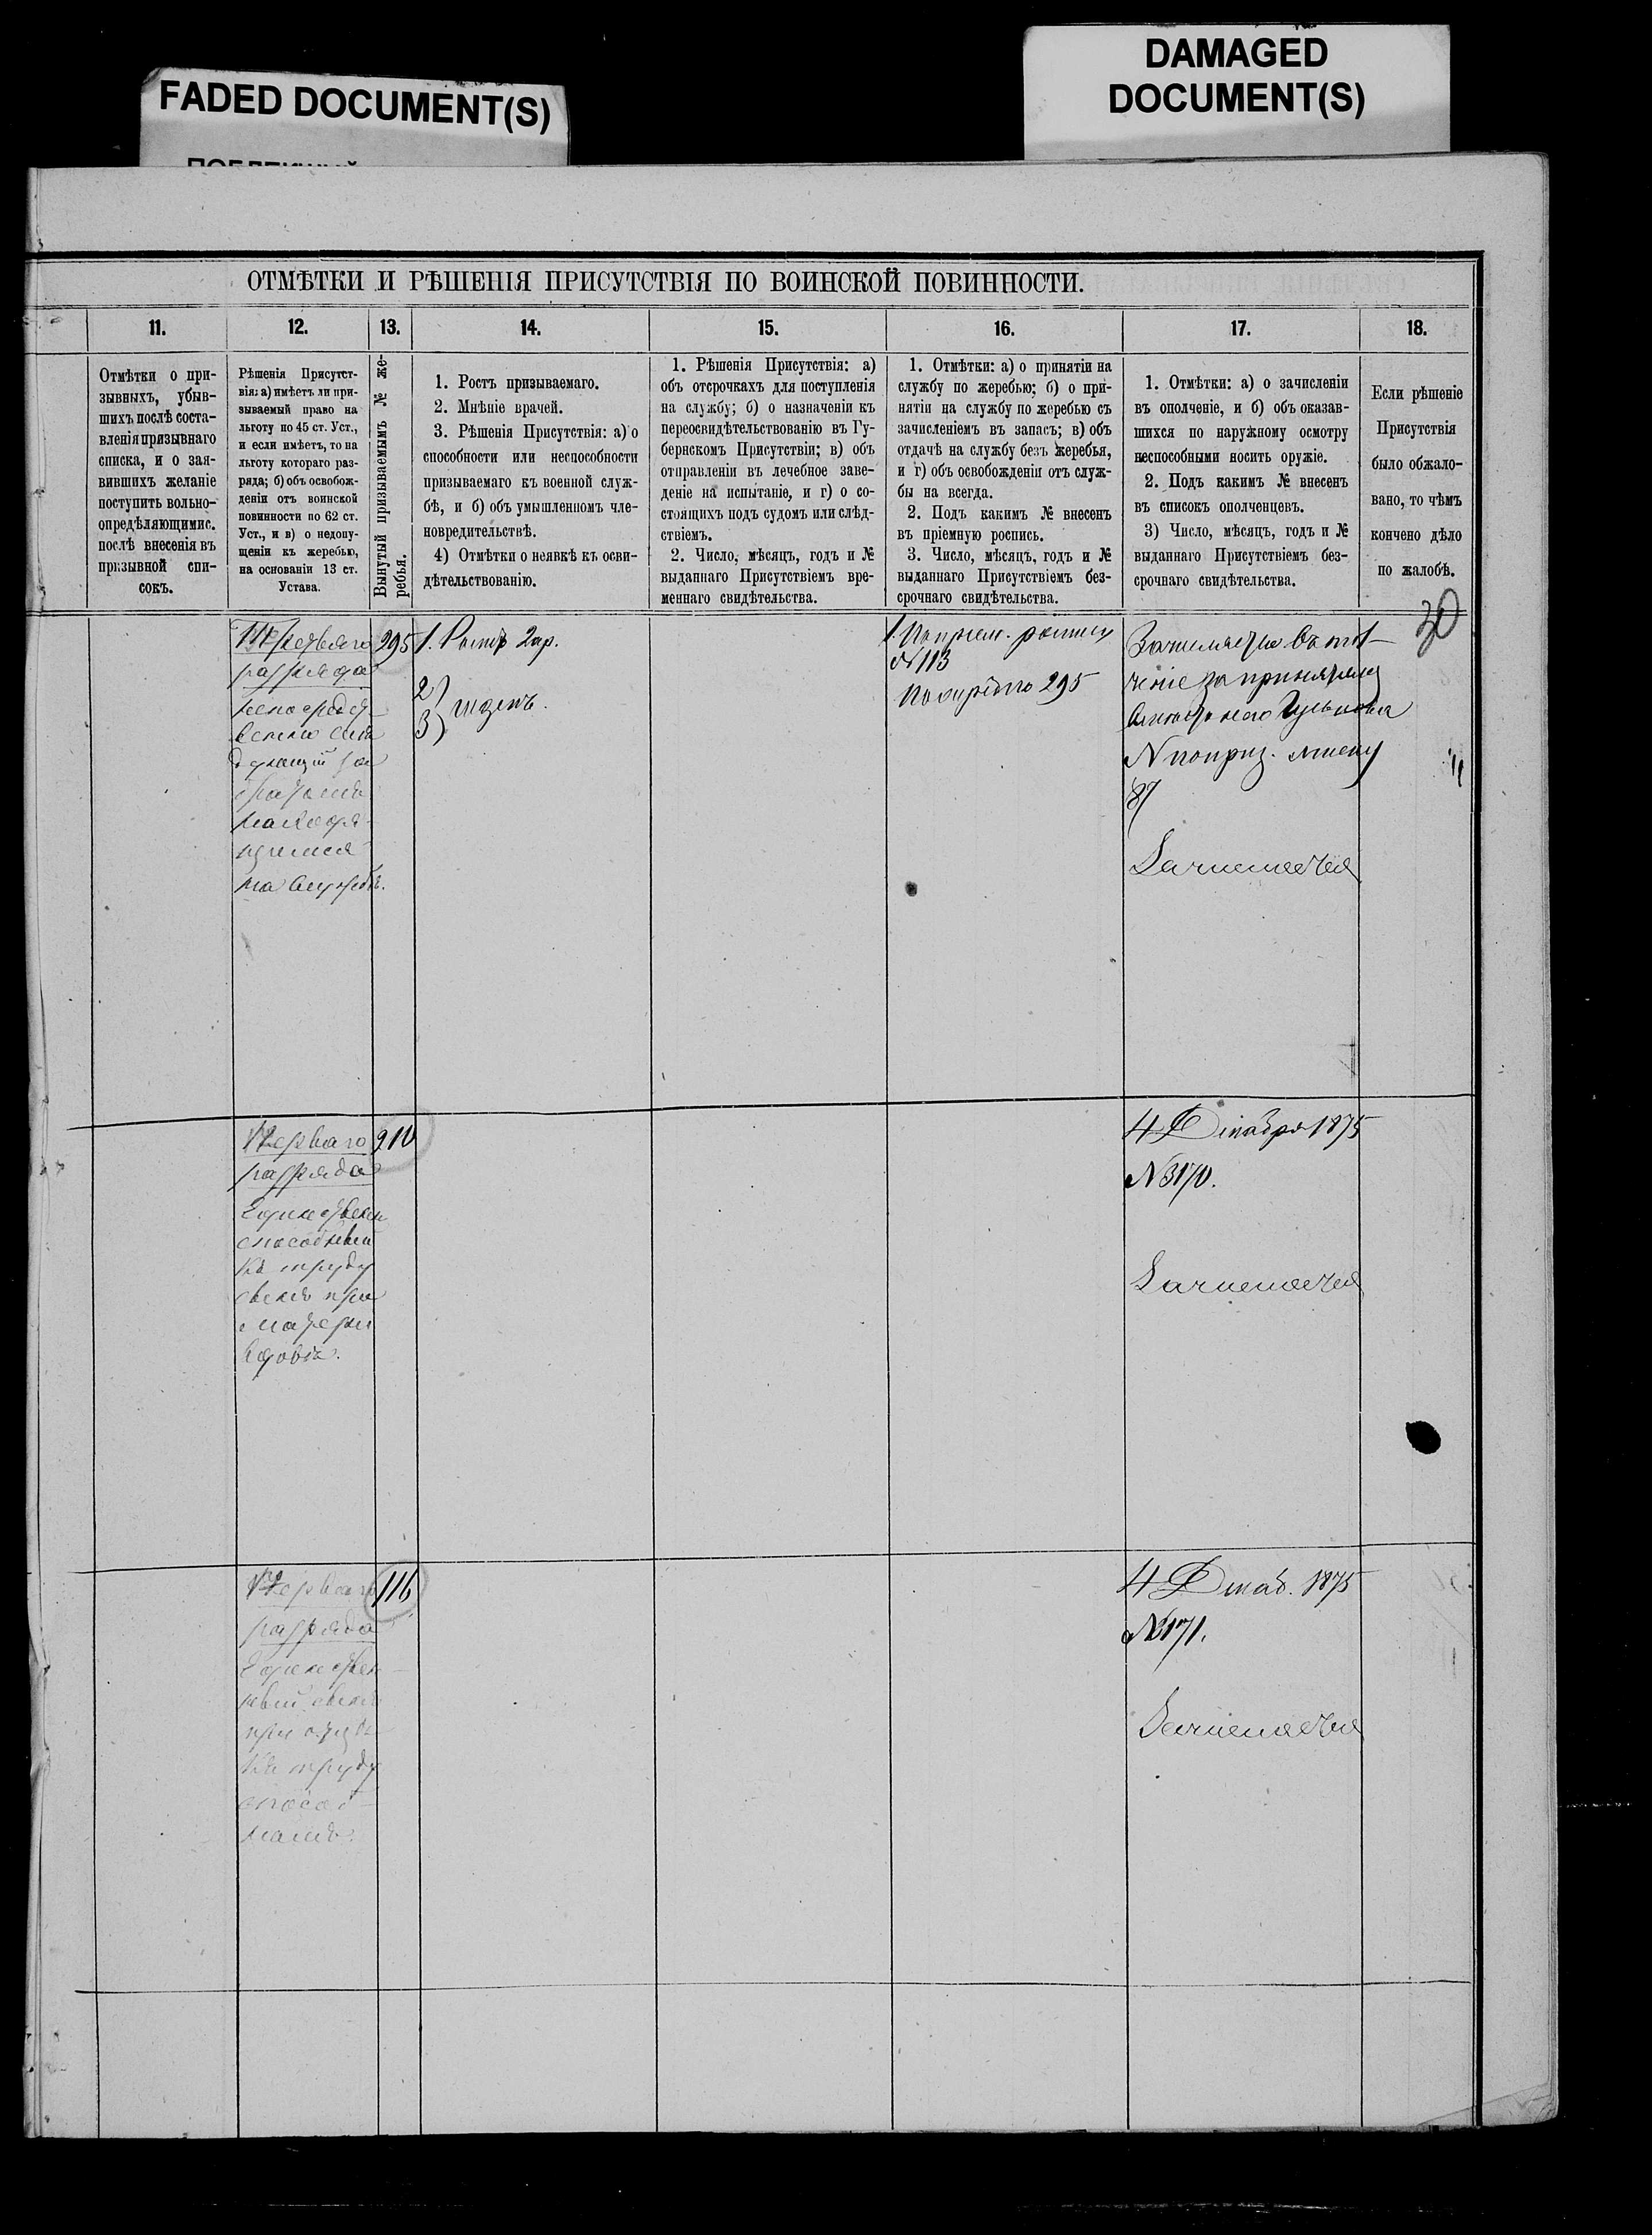 FADED DOCUMENT(S)
DAMAGED
DOCUMENT(S)
ОТМѢТКИ И РѢШЕНІЯ ПРИСУТСТВІЯ ПО ВОИНСКОЙ ПОВИННОСТИ.
11.
12.
13.
14.
15.
16.
17.
18.
Отмѣтки о при-
зывныхъ, убыв-
шихъ послѣ соста-
вленія призывнаго
списка, и о зая-
вившихъ желаніе
поступить вольно-
опредѣляющимис.
послѣ внесенія въ
призывной спи-
сокъ.
Рѣшенія Присутст-
вія: а) имѣетъ ли при-
зываемый право на
льготу по 45 ст. Уст.,
и если имѣетъ, то на
льготу котораго раз-
ряда; б) объ освобож-
деніи отъ воинской
повинности по 62 ст.
Уст., и в) о недопу-
щеніи къ жеребью,
на основаніи 13 ст.
Устава.
Вынутый призываемымъ № же-
ребья.
1. Ростъ призываемаго.
2. Мнѣніе врачей.
3. Рѣшенія Присутствія: а) о
способности или неспособности
призываемаго къ военной служ-
бѣ, и б) объ умышленномъ чле-
новредительствѣ.
4) Отмѣтки о неявкѣ къ осви-
дѣтельствованію.
1. Рѣшенія Присутствія: а)
объ отсрочкахъ для поступленія
на службу; б) о назначеніи къ
переосвидѣтельствованію въ Гу-
бернскомъ Присутствіи; в) объ
отправленіи въ лечебное заве-
деніе на испытаніе, и г) о со-
стоящихъ подъ судомъ или слѣд-
ствіемъ.
2. Число, мѣсяцъ, годъ и №
выданнаго Присутствіемъ вре-
меннаго свидѣтельства.
1. Отмѣтки: а) о принятіи на
службу по жеребью; б) о при-
нятіи на службу по жеребью съ
зачисленіемъ въ запасъ; в) объ
отдачѣ на службу безъ жеребья,
и г) объ освобожденіи отъ служ-
бы на всегда.
2. Подъ какимъ № внесенъ
въ пріемную роспись.
3. Число, мѣсяцъ, годъ и №
выданнаго Присутствіемъ без-
срочнаго свидѣтельства.
1. Отмѣтки: а) о зачисленіи
въ ополченіе, и б) объ оказав-
шихся по наружному осмотру
неспособными носить оружіе.
2. Подъ какимъ № внесенъ
въ списокъ ополченцевъ.
3) Число, мѣсяцъ, годъ и №
выданнаго Присутствіемъ без-
срочнаго свидѣтельства.
Если рѣшеніе
Присутствія
было обжало-
вано, то чѣмъ
кончено дѣло
по жалобѣ.
30
Третьяго
разряда
непосредст-
венно слѣ
дующій за
братомъ
находя-
щимся
на службѣ.
295
1. Ростъ 2 ар.
2)
3) годенъ.
1. По прием. росписи
№ 113
295
Зачисляется въ
за принятіемъ
№ по приз. списку
87
Зачисляется
Перваго
разряда
Единственн
способный
къ труду
сынъ при
матери
вдовѣ.
910
4 Декабря 1875
№ 3170.
Зачисляется
Перваго
разряда
Единствен-
ный сынъ
при отцѣ
къ труду
способ-
номъ.
116
4 Декаб. 1875
№ 3171.
Зачисляется